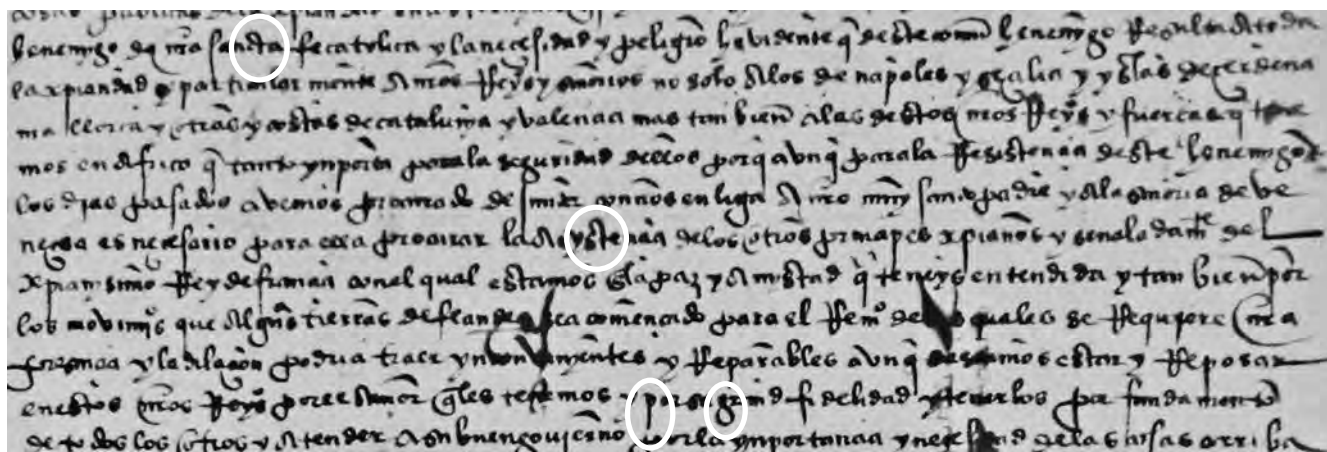 henemigo de nra santa fe catolica y la necesidad y peligro hevidente q deste comun henemygo Resulta a toda
la xpiandad y particular mente A nros Reys y señorios no solo A los de napoles y secalia y yslas de cerdena
mallorca y otras y costas de cataluña y valencia mas tan bien a las destos nros Reys y fuercas q tene
mos en africa q tanto ynporta para la seguridad dellos porq avnq para la Resistencia deste henemigo
los dias pasados avemos procurado de sunir con nos en liga A nro muy santo padre y A la señoria de ve
necia es necesario para ella procurar la Asystencia de los otros principes xpianos y señalada mte del
xpianisimo Rey de francia con el qual estamos en la paz y Amistad q teneys entendida y tan bien por
los movimis que Algunas tierras de flandes comencado para el Remo de los quales se Requiere nra
presencia y la dilacion podria traer ynconvinientes yrreparables avnq deseamos estar y Reposar
en estos nros Reys por el Amor q les tenemos y por su grand fidelidad y tenerlos por fundamento
de todos los otros y Atender A su buen governo por la ynportancia y necesidad de las cosas arriba